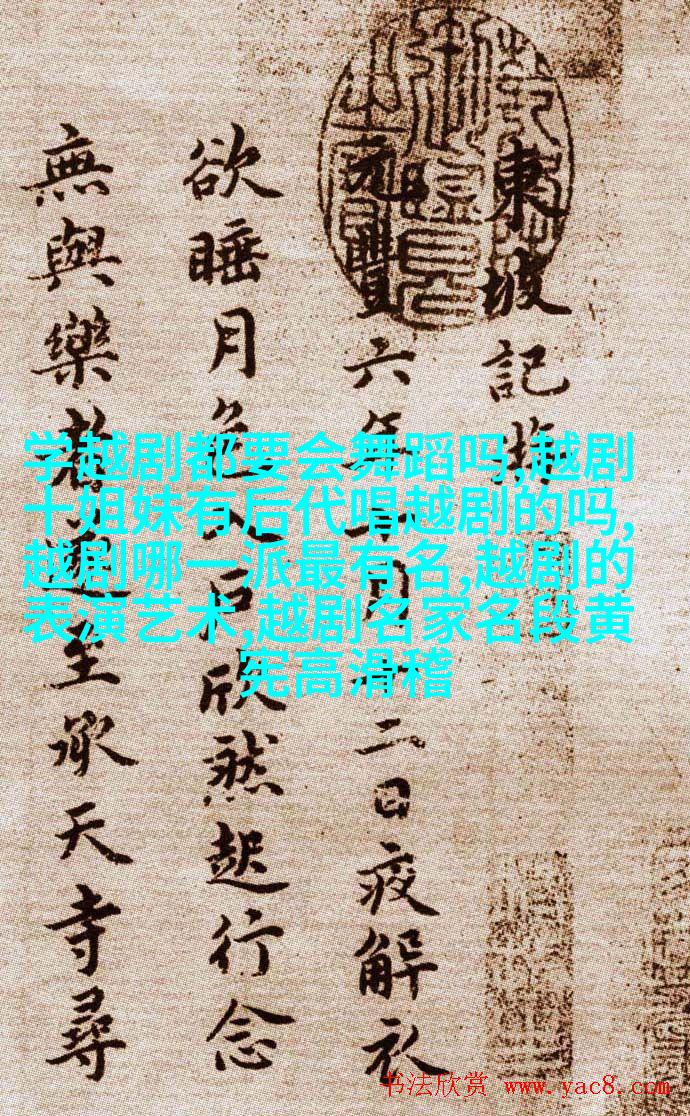 東坡記
元豐六年十月十二日夜解衣
欲睡月色入戶欣然起行念
無與樂者遂至承天寺尋
学越剧都要会舞蹈吗,越剧
十姐妹有后代唱越剧的吗,
越剧哪一派最有名,越剧的
表演艺术,越剧名家名段黄
宪高滑稽
书法欣赏 www.yac8.com